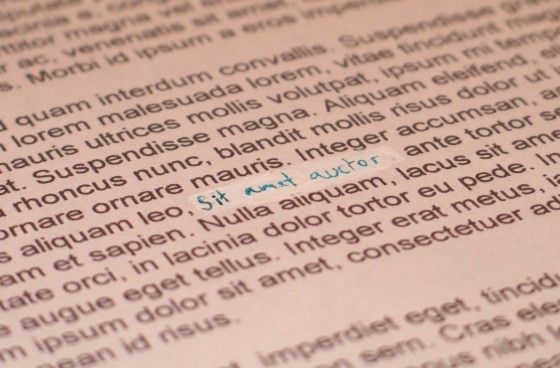 magna vel
ac, venenatis sit amet
s. Morbi id ipsum a eros
quam interdum convallis. Suspendisse
lorem malesuada lorem, vitae tincidunt
mauris ultrices mollis volutpat, ipsum mi
at. Suspendisse magna. Aliquam eleifend,
rhoncus nunc, blandit mollis risus dolor ut
ornare ornare mauris. Integer accumsan,
aliquam leo, Sit amet auctor ante tortor
am et sapien. Nulla aliquam, lacus sit
tate orci, in lacinia dolor tortor eu pede.
augue eget tellus. Integer erat metus,
m ipsum dolor sit amet, consectetuer
nean id risus.
imperdiet eget,
sem. Cras
nibh